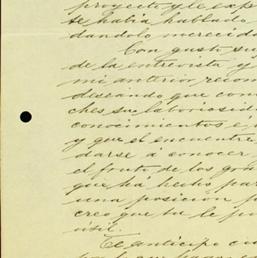 proyecto y le exp
te había hablado
dandolo merecida
Con gusto su
de la entrevista y
mi anterior recom
deseando que con
ches su laboriosid
conocimientos é i
y que él encuentre
darse á conocer
el fruto de los gra
que há hecho par
una posición p
creo que tu le pu
útil.
Te anticipo cu